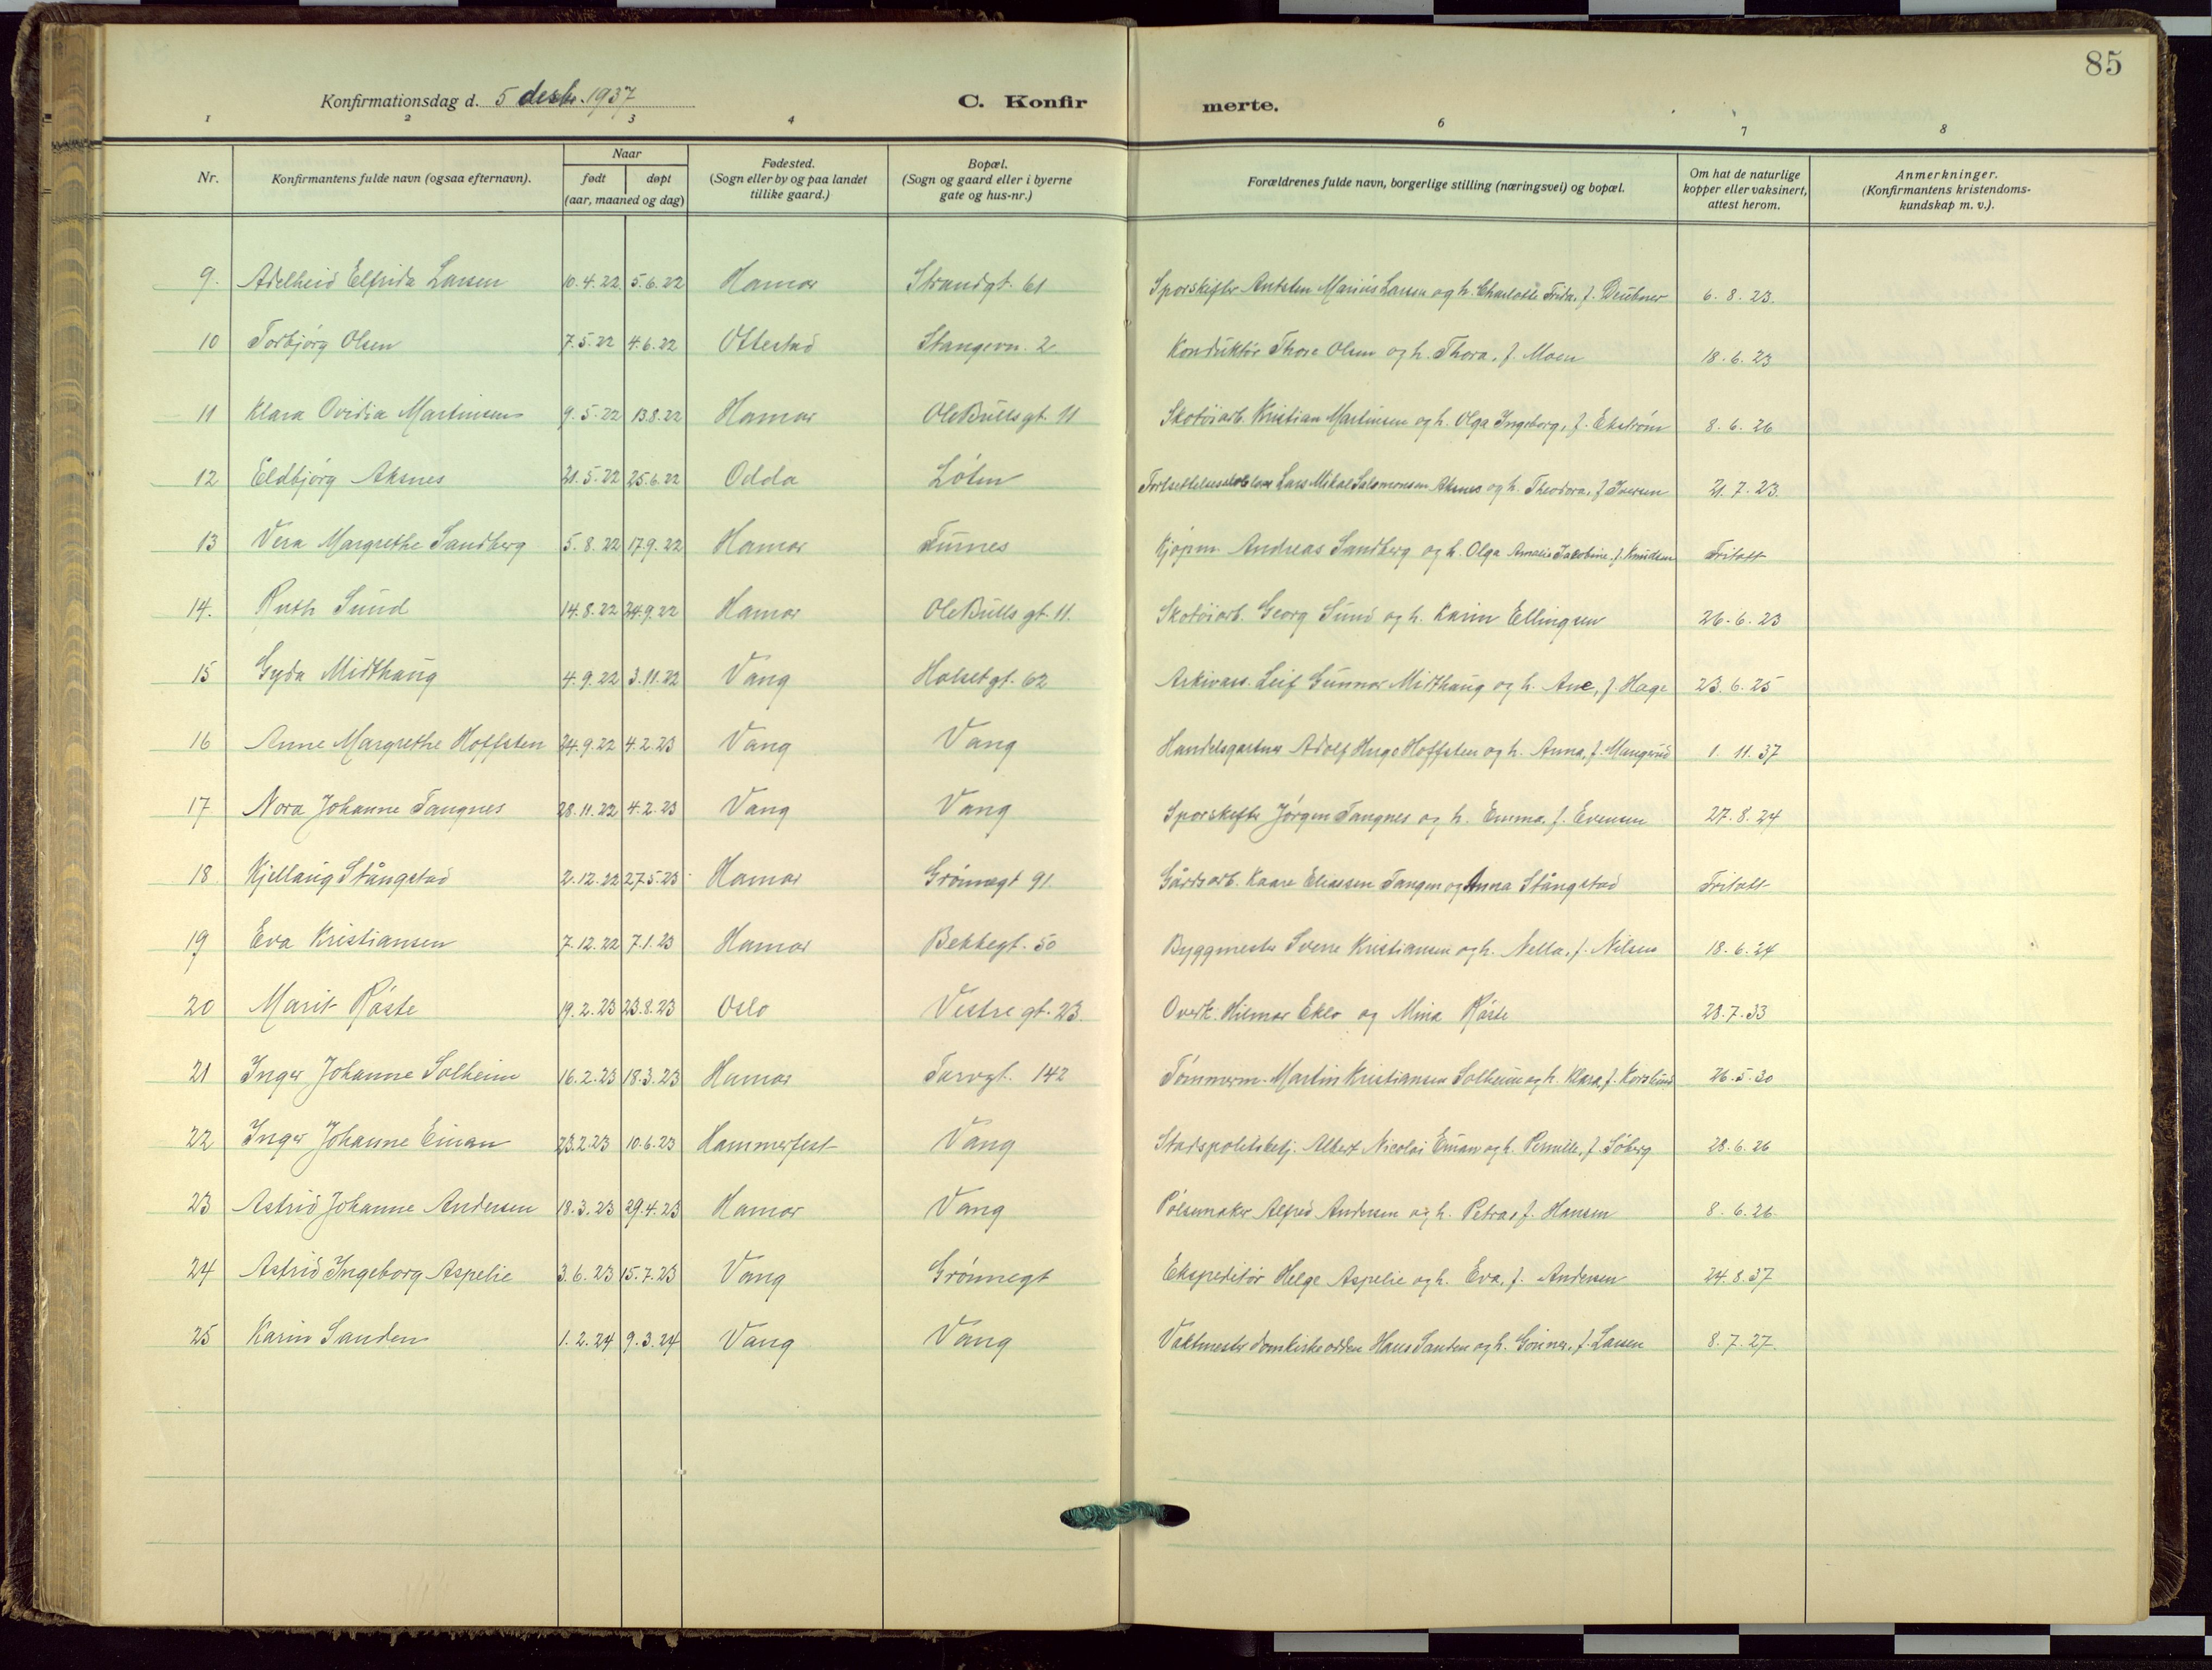 85
Konfirmationsdag d. 5 desbr. 1937
C. Konfir merte.
1 2 3 4 6 7 8
Nr. Konfirmantens fulde navn (ogsaa efternavn). Naar født døpt (aar, maaned og dag) Fødested. (Sogn eller by og paa landet tillike gaard.) Bopæl. (Sogn og gaard eller i byerne gate og hus-nr.) Forældrenes fulde navn, borgerlige stilling (næringsvei) og bopæl. Om hat de naturlige kopper eller vaksinert, attest herom. Anmerkninger. (Konfirmantens kristendoms- kundskap m. v.).
9. Adelheid Elfrida Larsen 10.4.22 5.6.22 Hamar Strandgt. 61 Sporskifter Antsten Marius Larsen og h. Charlotte Frida, f. Deubner 6.8.23.
10 Torbjörg Olsen 7.5.22 4.6.22 Ottestad Stangevn. 2 Konduktör Thore Olsen og h. Thora, f. Moen 18.6.23
11 Klara Ovidia Martinsen 9.5.22 13.8.22 Hamar Ole Bulls gt. 11 Skotöiarb. Kristian Martinsen og h. Olga Ingeborg, f. Ekström 8.6.26
12 Eldbjörg Aksnes 21.5.22 25.6.22 Odda Löten Lars Mikal Salomonsen Aksnes og h. Theodora, f. Iversen 21.7.23.
13 Vera Margrethe Sandberg 5.8.22 17.9.22 Hamar Furnes Kjöpm. Andreas Sandberg og h. Olga Amalie Jacobine f. Knudsen Fritatt
14. Ruth Sund 14.8.22 24.9.22 Hamar Ole Bulls gt. 11. Skotöiarb. Georg Sund og h. Karin Ellingsen 26.6.23
15 Gyda Midthaug 4.9.22 3.11.22 Vang Holsetgt. 62 Arkivass. Leif Gunnar Midthaug og h. Ane, f. Hage 23.6.25
16 Anne Margrethe Hoffsten 24.9.22 4.2.23 Vang Vang Handelsgartner Adolf Hugo Hoffsten og h. Anna, f. Mangrud 1.11.37
17 Nora Johanne Tangnes 28.11.22 4.2.23 Vang Vang Sporskifter Jörgen Tangnes og h. Emma, f. Evensen 27.8.24
18 Kjellaug Stångstad 2.12.22 27.5.23 Hamar Grönnegt 91. Gårdsarb. Kaare Eliassen Tangen og Anna Stångstad Fritatt
19 Eva Kristiansen 7.12.22 7.1.23 Hamar Bekkegt. 50 Byggmester Sverre Kristiansen og h. Nella, f. Nilsen 18.6.24
20 Marit Röste 19.2.23 23.8.23 Oslo Vestre gt. 23. Overk. Hilmar Eklo og Mina Röste 28.7.33
21 Inger Johanne Solheim 16.2.23 18.3.23 Hamar Torvgt. 142 Tömmerm. Martin Kristiansen Solheim og h. Klara, f. Korslund 26.5.30
22 Inger Johanne Einan 23.2.23 10.6.23 Hammerfest Vang Statspolitibetj. Albert Nicolai Einan og h. Pernille, f. Söberg 28.6.26
23 Astrid Johanne Andersen 18.3.23 29.4.23 Hamar Vang Pölsemaker Alfred Andersen og h. Petra, f. Hansen 8.6.26.
24 Astrid Ingeborg Aspelie 3.6.23 15.7.23 Vang Grönnegt Ekspeditör Helge Aspelie og h. Eva, f. Andersen 24.8.37
25 Karin Sanden 1.2.24 9.3.24 Vang Vang Vaktmester domkirkeodden Hans Sanden og h. Gunner, f. Larsen 8.7.27.